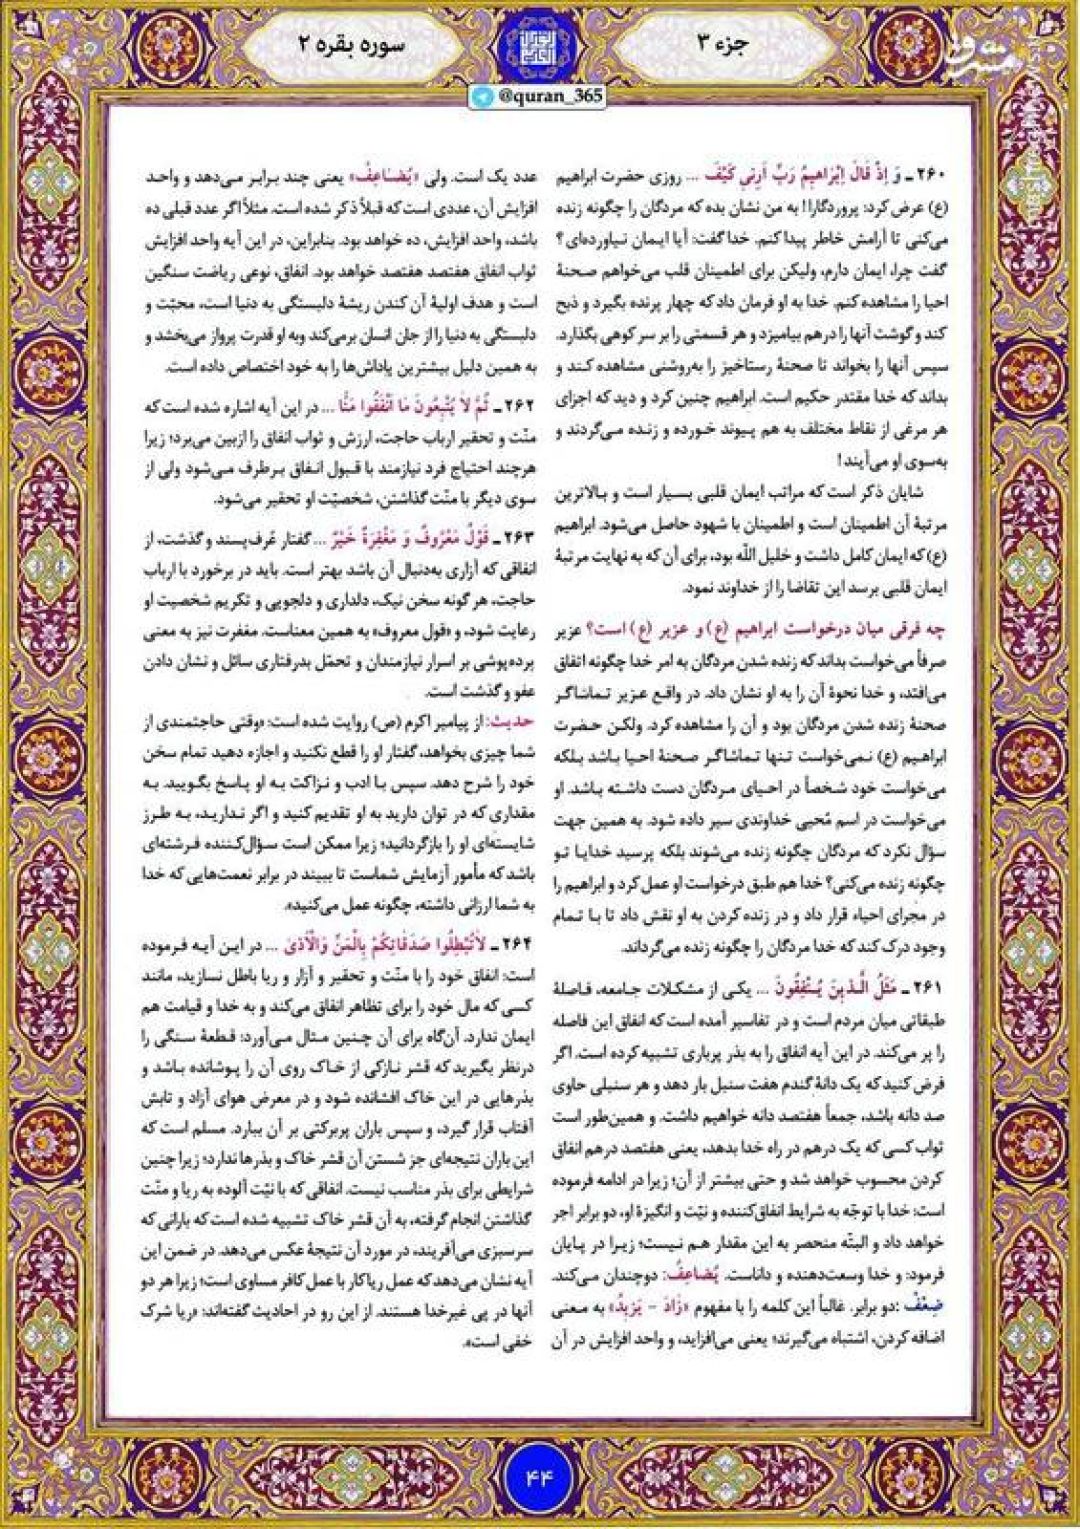 جزء ۳
سوره بقره ۲
@quran_365
۲۶۰ ـ وَ إِذْ قَالَ إِبْرَاهِیمُ رَبِّ أَرِنِي كَيْفَ ... روزی حضرت ابراهیم
(ع) عرض کرد: پروردگارا! به من نشان بده که مردگان را چگونه زنده
می‌کنی تا آرامش خاطر پیدا کنم. خدا گفت: آیا ایمان نیاورده‌ای؟
گفت چرا، ایمان دارم، ولیکن برای اطمینان قلب می‌خواهم صحنهٔ
احیا را مشاهده کنم. خدا به او فرمان داد که چهار پرنده بگیرد و ذبح
کند و گوشت آنها را درهم بیامیزد و هر قسمتی را بر سر کوهی بگذارد.
سپس آنها را بخواند تا صحنهٔ رستاخیز را به‌روشنی مشاهده کند و
بداند که خدا مقتدر حکیم است. ابراهیم چنین کرد و دید که اجزای
هر مرغی از نقاط مختلف به هم پیوند خورده و زنده می‌گردند و
به‌سوی او می‌آیند!
شایان ذکر است که مراتب ایمان قلبی بسیار است و بالاترین
مرتبهٔ آن اطمینان است و اطمینان با شهود حاصل می‌شود. ابراهیم
(ع) که ایمان کامل داشت و خلیل الله بود، برای آن که به نهایت مرتبهٔ
ایمان قلبی برسد این تقاضا را از خداوند نمود.
چه فرقی میان درخواست ابراهیم (ع) و عزیر (ع) است؟ عزیر
صرفاً می‌خواست بداند که زنده شدن مردگان به امر خدا چگونه اتفاق
می‌افتد، و خدا نحوهٔ آن را به او نشان داد. در واقع عزیر تماشاگر
صحنهٔ زنده شدن مردگان بود و آن را مشاهده کرد. ولکن حضرت
ابراهیم (ع) نمی‌خواست تنها تماشاگر صحنهٔ احیا باشد بلکه
می‌خواست خود شخصاً در احیای مردگان دست داشته باشد. او
می‌خواست در اسم مُحیی خداوندی سیر داده شود. به همین جهت
سؤال نکرد که مردگان چگونه زنده می‌شوند بلکه پرسید خدایا تو
چگونه زنده می‌کنی؟ خدا هم طبق درخواست او عمل کرد و ابراهیم را
در مجرای احیاء قرار داد و در زنده کردن به او نقش داد تا با تمام
وجود درک کند که خدا مردگان را چگونه زنده می‌گرداند.
۲۶۱ ـ مَثَلُ الَّذِینَ یُنْفِقُونَ ... یکی از مشکلات جامعه، فاصلهٔ
طبقاتی میان مردم است و در تفاسیر آمده است که انفاق این فاصله
را پر می‌کند. در این آیه انفاق را به بذر پرباری تشبیه کرده است. اگر
فرض کنید که یک دانهٔ گندم هفت سنبل بار دهد و هر سنبلی حاوی
صد دانه باشد، جمعاً هفتصد دانه خواهیم داشت. و همین‌طور است
ثواب کسی که یک درهم در راه خدا بدهد، یعنی هفتصد درهم انفاق
کردن محسوب خواهد شد و حتی بیشتر از آن؛ زیرا در ادامه فرموده
است: خدا با توجّه به شرایط انفاق‌کننده و نیّت و انگیزهٔ او، دو برابر اجر
خواهد داد و البتّه منحصر به این مقدار هم نیست؛ زیرا در پایان
فرمود: و خدا وسعت‌دهنده و داناست. یُضَاعِفُ: دوچندان می‌کند.
ضِعْفْ: دو برابر. غالباً این کلمه را با مفهوم «زَادَ - یَزِیدُ» به معنی
اضافه کردن، اشتباه می‌گیرند؛ یعنی می‌افزاید، و واحد افزایش در آن
عدد یک است. ولی «یُضَاعِفُ» یعنی چند برابر می‌دهد و واحد
افزایش آن، عددی است که قبلاً ذکر شده است. مثلاً اگر عدد قبلی ده
باشد، واحد افزایش، ده خواهد بود. بنابراین، در این آیه واحد افزایش
ثواب انفاق هفتصد هفتصد خواهد بود. انفاق، نوعی ریاضت سنگین
است و هدف اولیهٔ آن کندن ریشهٔ دلبستگی به دنیا است، محبّت و
دلبستگی به دنیا را از جان انسان برمی‌کند و به او قدرت پرواز می‌بخشد و
به همین دلیل بیشترین پاداش‌ها را به خود اختصاص داده است.
۲۶۲ ـ ثُمَّ لَا یُتْبِعُونَ مَا أَنْفَقُوا مَنًّا ... در این آیه اشاره شده است که
منّت و تحقیر ارباب حاجت، ارزش و ثواب انفاق را ازبین می‌برد؛ زیرا
هرچند احتیاج فرد نیازمند با قبول انفاق برطرف می‌شود ولی از
سوی دیگر با منّت گذاشتن، شخصیّت او تحقیر می‌شود.
۲۶۳ ـ قَوْلٌ مَعْرُوفٌ وَ مَغْفِرَةٌ خَيْرٌ ... گفتار عُرف‌پسند و گذشت، از
انفاقی که آزاری به‌دنبال آن باشد بهتر است. باید در برخورد با ارباب
حاجت، هر گونه سخن نیک، دلداری و دلجویی و تکریم شخصیت او
رعایت شود، و «قول معروف» به همین معناست. مغفرت نیز به معنی
پرده‌پوشی بر اسرار نیازمندان و تحمّل بدرفتاری سائل و نشان دادن
عفو و گذشت است.
حدیث: از پیامبر اکرم (ص) روایت شده است: «وقتی حاجتمندی از
شما چیزی بخواهد، گفتار او را قطع نکنید و اجازه دهید تمام سخن
خود را شرح دهد. سپس با ادب و نزاکت به او پاسخ بگویید. به
مقداری که در توان دارید به او تقدیم کنید و اگر ندارید، به طرز
شایسته‌ای او را بازگردانید؛ زیرا ممکن است سؤال‌کننده فرشته‌ای
باشد که مأمور آزمایش شماست تا ببیند در برابر نعمت‌هایی که خدا
به شما ارزانی داشته، چگونه عمل می‌کنید».
۲۶۴ ـ لَاتُبْطِلُوا صَدَقَاتِكُمْ بِالْمَنِّ وَالْأَذَى ... در این آیه فرموده
است: انفاق خود را با منّت و تحقیر و آزار و ریا باطل نسازید، مانند
کسی که مال خود را برای تظاهر انفاق می‌کند و به خدا و قیامت هم
ایمان ندارد. آن‌گاه برای آن چنین مثال می‌آورد: قطعهٔ سنگی را
درنظر بگیرید که قشر نازکی از خاک روی آن را پوشانده باشد و
بذرهایی در این خاک افشانده شود و در معرض هوای آزاد و تابش
آفتاب قرار گیرد، و سپس باران پربرکتی بر آن ببارد. مسلم است که
این باران نتیجه‌ای جز شستن آن قشر خاک و بذرها ندارد؛ زیرا چنین
شرایطی برای بذر مناسب نیست. انفاقی که با نیّت آلوده به ریا و منّت
گذاشتن انجام گرفته، به آن قشر خاک تشبیه شده است که بارانی که
سرسبزی می‌آفریند، در مورد آن نتیجهٔ عکس می‌دهد. در ضمن این
آیه نشان می‌دهد که عمل ریاکار با عمل کافر مساوی است؛ زیرا هر دو
آنها در پی غیرخدا هستند. از این رو در احادیث گفته‌اند: «ریا شرک
خفی است».
۴۴